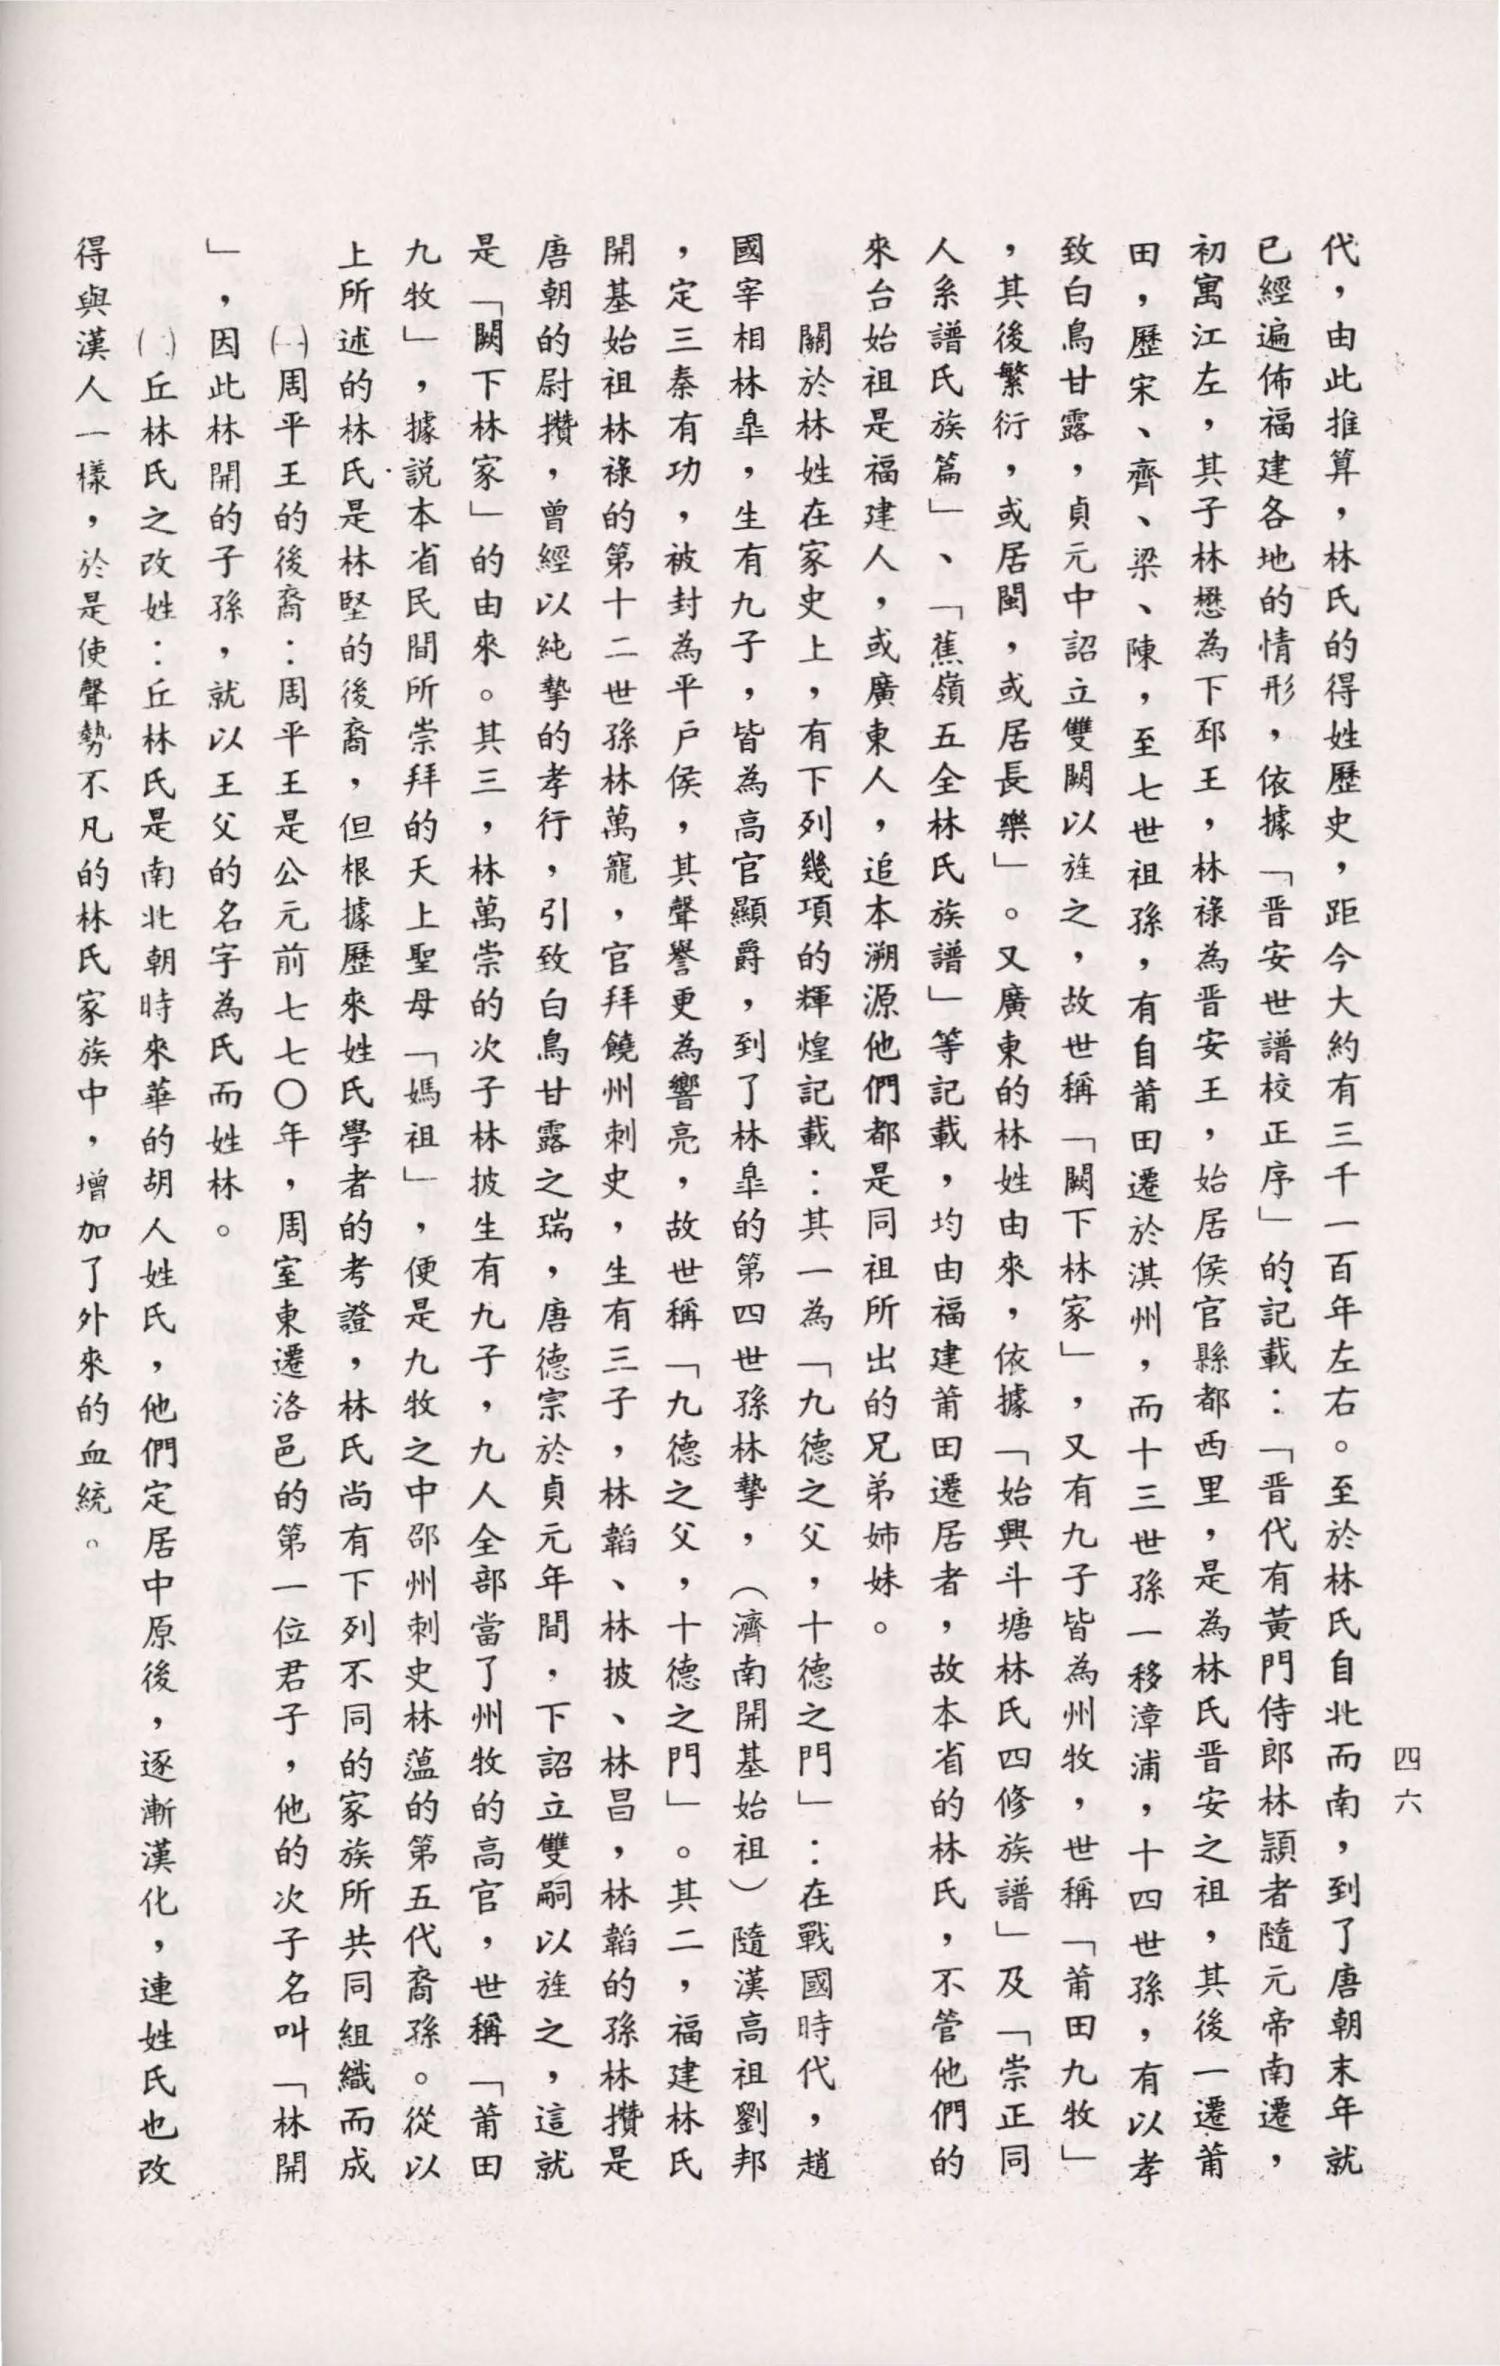 四六
代，由此推算，林氏的得姓歷史，距今大約有三千一百年左右。至於林氏自北而南，到了唐朝末年就
已經遍佈福建各地的情形，依據「晋安世譜校正序」的記載：「晋代有黃門侍郎林頴者隨元帝南遷，
初寓江左，其子林懋為下邳王，林祿為晋安王，始居侯官縣都西里，是為林氏晋安之祖，其後一遷莆
田，歷宋、齊、梁、陳，至七世祖孫，有自莆田遷於淇州，而十三世孫一移漳浦，十四世孫，有以孝
致白鳥甘露，貞元中詔立雙闕以旌之，故世稱「闕下林家」，又有九子皆為州牧，世稱「莆田九牧」
，其後繁衍，或居閩，或居長樂」。又廣東的林姓由來，依據「始興斗塘林氏四修族譜」及「崇正同
人系譜氏族篇」、「蕉嶺五全林氏族譜」等記載，均由福建莆田遷居者，故本省的林氏，不管他們的
來台始祖是福建人，或廣東人，追本溯源他們都是同祖所出的兄弟姊妹。
關於林姓在家史上，有下列幾項的輝煌記載：其一為「九德之父，十德之門」：在戰國時代，趙
國宰相林皐，生有九子，皆為高官顯爵，到了林皐的第四世孫林摯，（濟南開基始祖）隨漢高祖劉邦
，定三秦有功，被封為平戶侯，其聲譽更為響亮，故世稱「九德之父，十德之門」。其二，福建林氏
開基始祖林祿的第十二世孫林萬寵，官拜饒州刺史，生有三子，林韜、林披、林昌，林韜的孫林攢是
唐朝的尉攢，曾經以純摯的孝行，引致白鳥甘露之瑞，唐德宗於貞元年間，下詔立雙嗣以旌之，這就
是「闕下林家」的由來。其三，林萬崇的次子林披生有九子，九人全部當了州牧的高官，世稱「莆田
九牧」，據說本省民間所崇拜的天上聖母「媽祖」，便是九牧之中邵州刺史林薀的第五代裔孫。從以
上所述的林氏是林堅的後裔，但根據歷來姓氏學者的考證，林氏尚有下列不同的家族所共同組織而成
㈠周平王的後裔：周平王是公元前七七〇年，周室東遷洛邑的第一位君子，他的次子名叫「林開
」，因此林開的子孫，就以王父的名字為氏而姓林。
丘林氏之改姓：丘林氏是南北朝時來華的胡人姓氏，他們定居中原後，逐漸漢化，連姓氏也改
得與漢人一樣，於是使聲勢不凡的林氏家族中，增加了外來的血統。